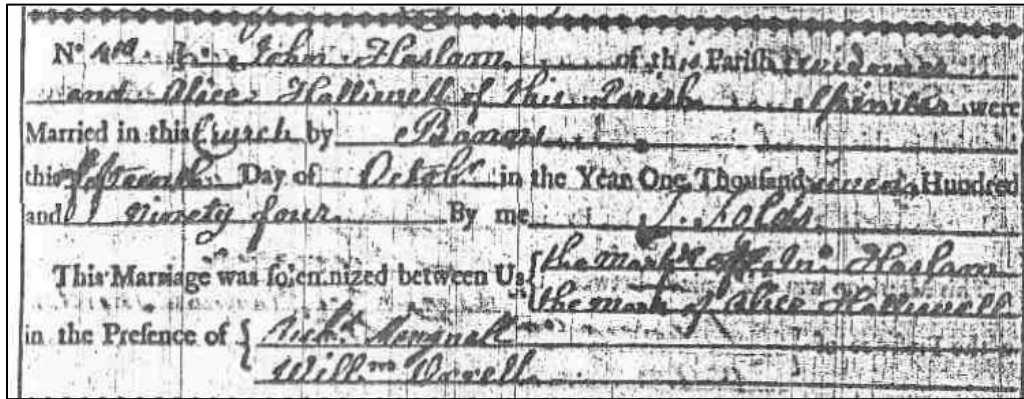 No 419 John Haslam of this Parish Widower
and Alice Halliwell of this Parish Spinster were
Married in this Church by Banns
this fifteenth Day of Octobr in the Year One Thousand seven Hundred
and Ninety four By me J. Folds
This Marriage was solemnized between Us { the mark of Jno Haslam
the mark of Alice Halliwell
in the Presence of { Richd Mangnall
Willm Worell